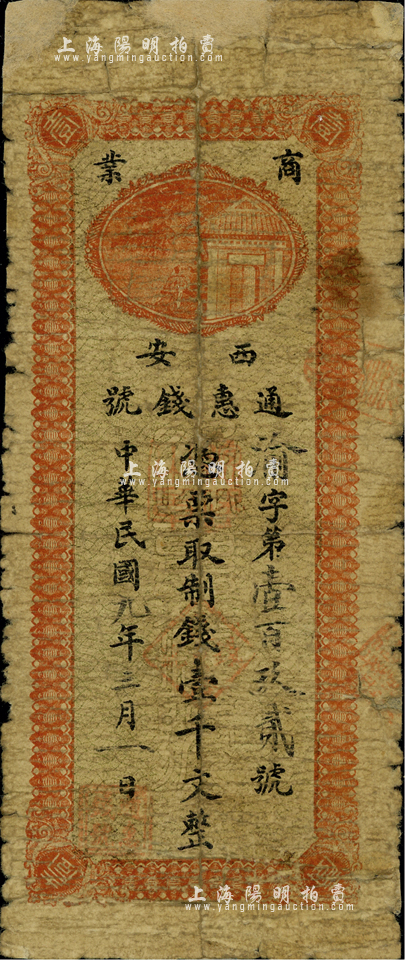 上海陽明拍賣
www.yangmingauction.com
壹
壹
商業
西安
通惠錢號
字第壹百玖貳號
憑票取制錢壹千文整
中華民國九年三月一日
上海陽明拍賣
www.yangmingauction.com
壹
壹
上海陽明拍賣
www.yangmingauction.com